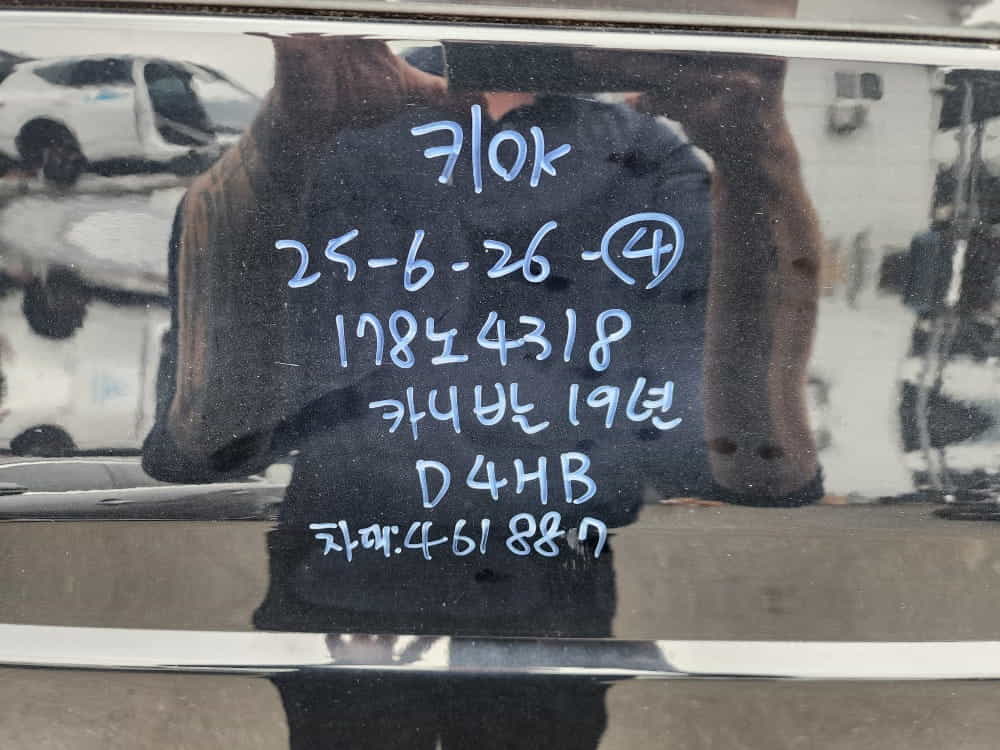 키OK
25-6-26-④
178노4318
카니발 19년
D4HB
차대:461887